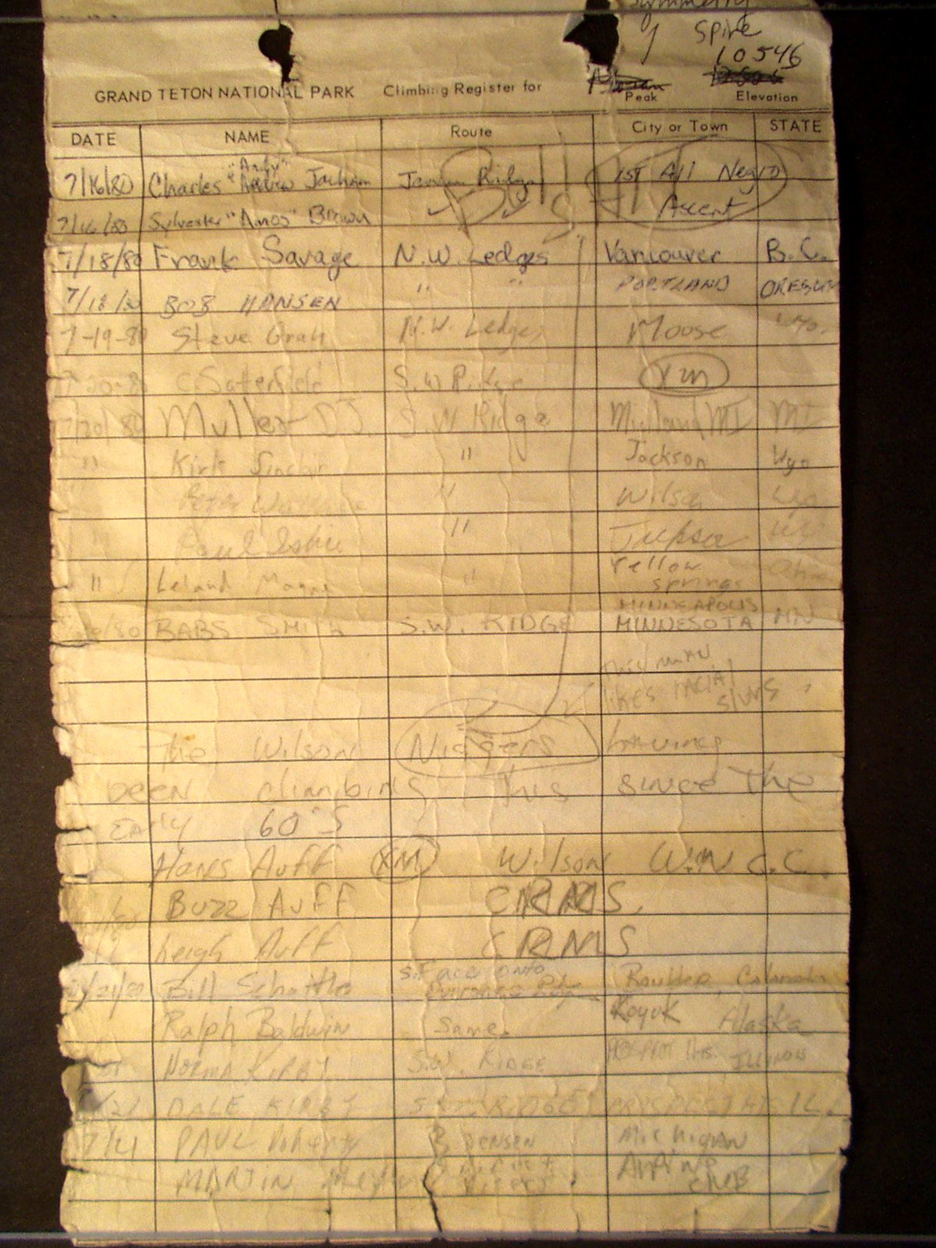 Symmetry
Spire
10546
GRAND TETON NATIONAL PARK Climbing Register for Peak Elevation
DATE NAME Route City or Town STATE
7/16/80 Charles "Andy" Jackson Jensen Ridge 1st All Negro
7/16/80 Sylvester "Amos" Brown Ascent
Bull Shit
7/18/80 Frank Savage N.W. Ledges Vancouver B.C.
7/18/80 BOB HANSEN " " PORTLAND OREGON
7-19-80 Steve N.W. Ledges Moose Wyo.
7-20-80 C Saterfield S.W. Ridge XM
7/20/80 Muller DJ S.W Ridge Midland MI MI
" Kirk Sinclair " Jackson Wyo
" Peter " Wilson Wyo
" Paul " Jackson
" Leland " Yellow springs Ohio
/80 BABS SMITH S.W. RIDGE MINNEAPOLIS MINNESOTA MN
This man
likes racial
slurs
The Wilson Niggers having
been climbing this since the
Early 60'S
Hans Auff XM Wilson W.N.C.C.
Buzz Auff CRMS.
Leigh Auff CRMS
/21/80 Bill S. Face onto Boulder, Colorado
Ralph Baldwin Same. Koyuk Alaska
NORMA KIRBY S.W. RIDGE ILLINOIS
DALE KIRBY S.W. RIDGE PROSPECT HTS IL.
PAUL JENSEN Michigan
MARTIN Alpine
club